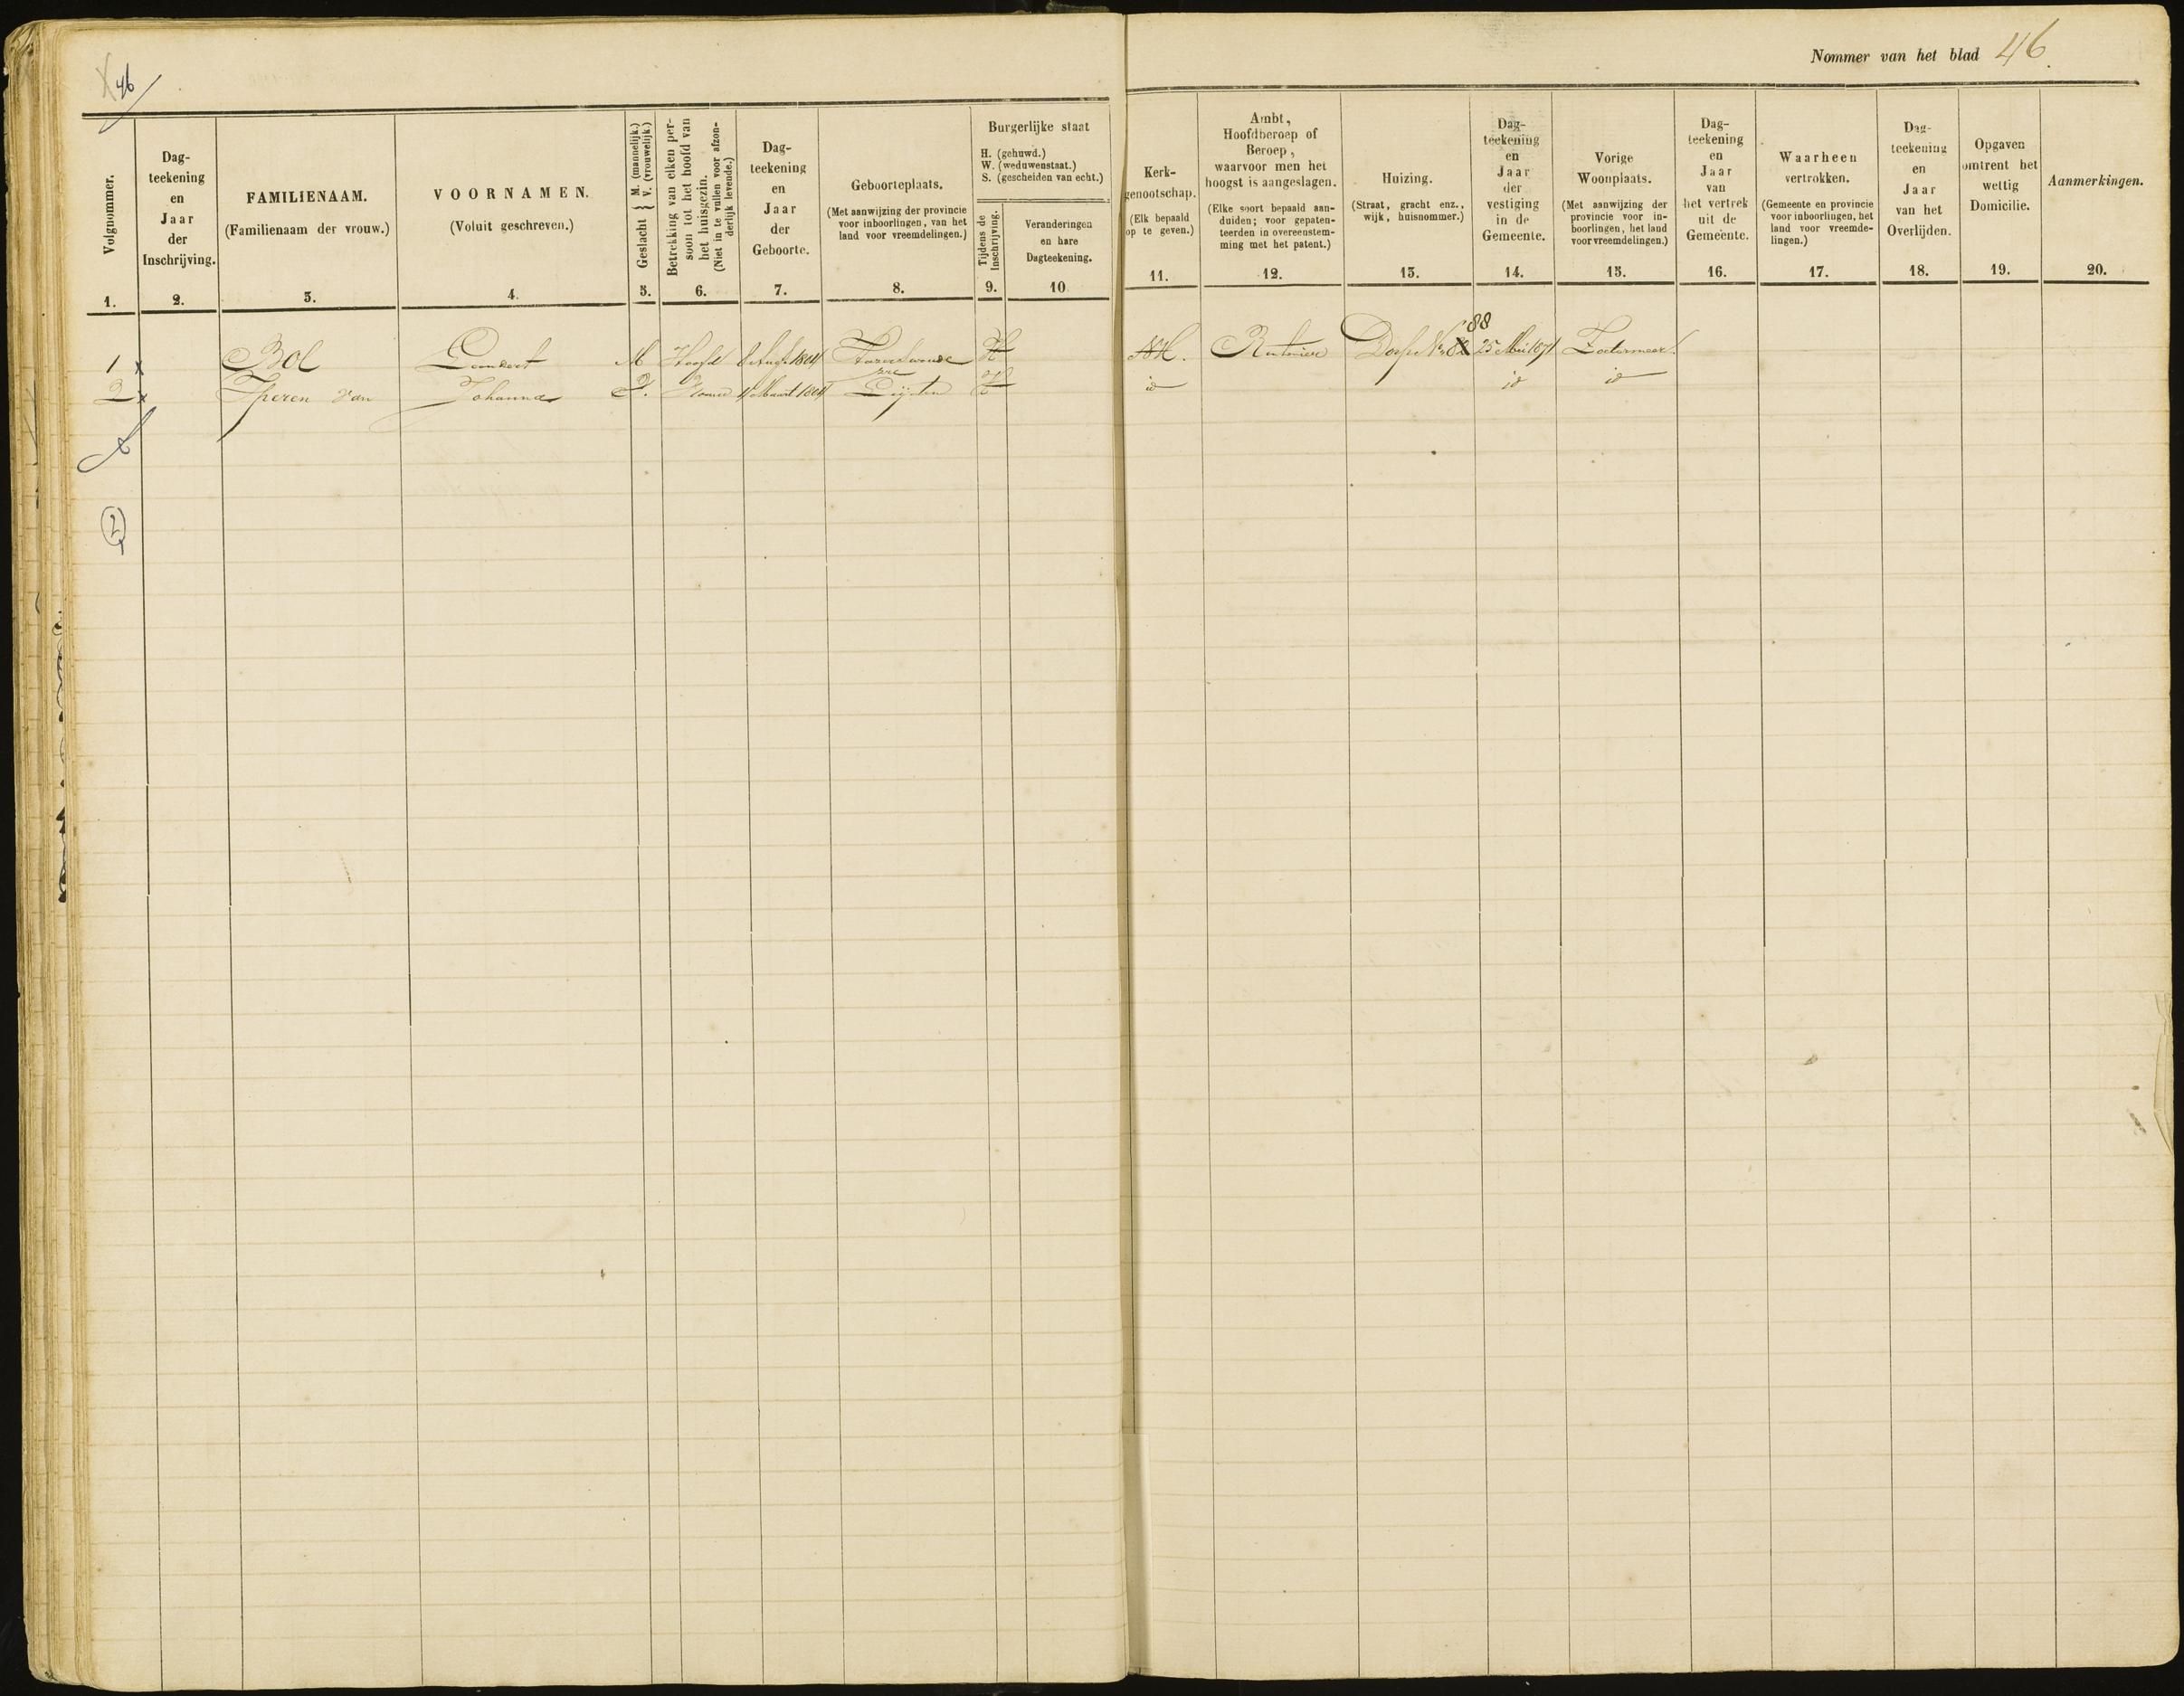 46
Nommer van het blad 46.
Volgnommer.
1.
Dag-
teekening
en
Jaar
der
Inschrijving.
2.
FAMILIENAAM.
(Familienaam der vrouw.)
3.
VOORNAMEN.
(Voluit geschreven.)
4.
Geslacht { M. (mannelijk.) V. (vrouwelijk.)
5.
Betrekking van elken per-
soon tot het hoofd van
het huisgezin.
(Niet in te vullen voor afzon-
derlijk levende.)
6.
Dag-
teekening
en
Jaar
der
Geboorte.
7.
Geboorteplaats.
(Met aanwijzing der provincie
voor inboorlingen, van het
land voor vreemdelingen.)
8.
Burgerlijke staat
H. (gehuwd.)
W. (weduwenstaat.)
S. (gescheiden van echt.)
Tijdens de
Inschrijving.
9.
Veranderingen
en hare
Dagteekening.
10
Kerk-
genootschap.
(Elk bepaald
op te geven.)
11.
Ambt,
Hoofdberoep of
Beroep,
waarvoor men het
hoogst is aangeslagen.
(Elke soort bepaald aan-
duiden; voor gepaten-
teerden in overeenstem-
ming met het patent.)
12.
Huizing.
(Straat, gracht enz.,
wijk, huisnommer.)
13.
Dag-
teekening
en
Jaar
der
vestiging
in de
Gemeente.
14.
Vorige
Woonplaats.
(Met aanwijzing der
provincie voor in-
boorlingen, het land
voor vreemdelingen.)
15.
Dag-
teekening
en
Jaar
van
het vertrek
uit de
Gemeente.
16.
Waarheen
vertrokken.
(Gemeente en provincie
voor inboorlingen, het
land voor vreemde-
lingen.)
17.
Dag-
teekening
en
Jaar
van het
Overlijden.
18.
Opgaven
omtrent het
wettig
Domicilie.
19.
Aanmerkingen.
20.
88
1 x Bol Leendert M Hoofd 1804 H NH. Rentenier Dorp No 25 Mei 1871 Zoetermeer
2 x Iperen van Johanna V. Vrouw Maart 1804 H id id id
2